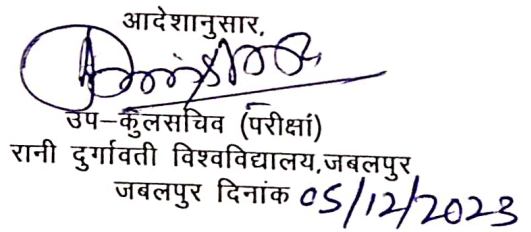 आदेशानुसार,
उप-कुलसचिव (परीक्षां)
रानी दुर्गावती विश्वविद्यालय,जबलपुर
जबलपुर दिनांक 05/12/2023